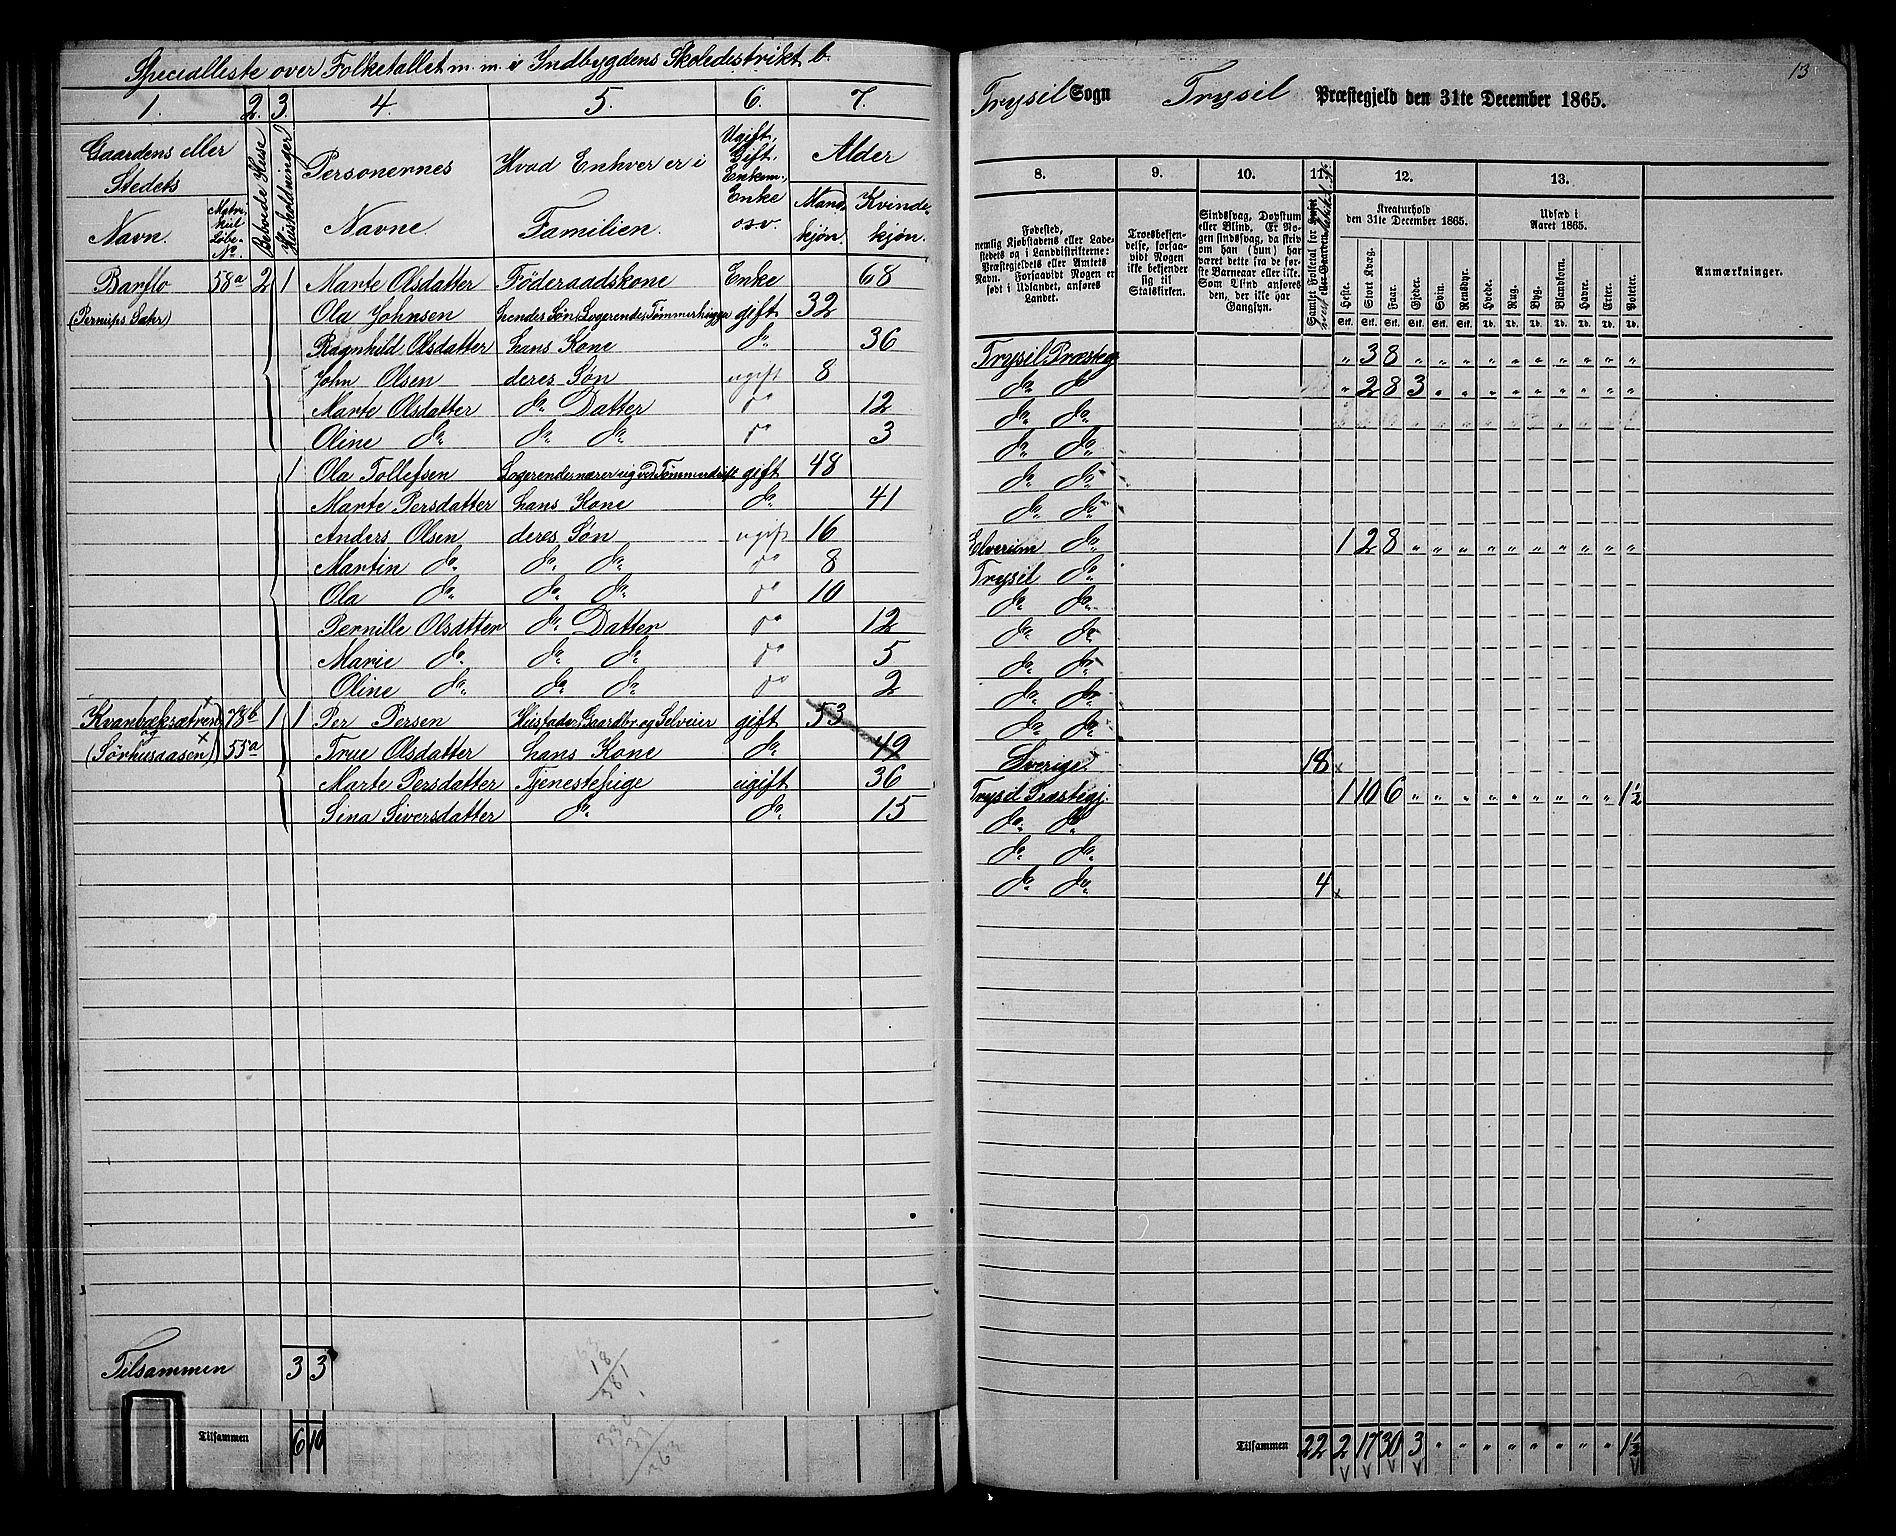 Specialliste over Folketallet m. m. i Indbygdens Skoledistrikt b.
1. 2. 3. 4. 5. 6. 7.
Gaardens eller Stedets
Navn.
Matrikul Løbe-No
Beboede Huse
Husholdninger
Personernes Navne
Hvad Enhver er i Familien.
Ugift, Gift, Enkem., Enke osv.
Alder
Mandkjøn. Kvindekjøn.
Barflo 58a 2 1 Marte Olsdatter Föderaadskone Enke 68
Ola Johnsen hendes Søn, Logerende, Tømmerhugger gift 32
Ragnhild Olsdatter hans Kone do. 36
John Olsen deres Søn ugift 8
Marte Olsdatter do. Datter do 12
Oline do. do. do. do 3
1 Ola Tollefsen Logerende, nærer sig ved Tømmerdrift gift 48
Marte Persdatter hans Kone do. 41
Anders Olsen deres Søn ugift 16
Martin do. do. do. do 8
Ola do. do. do. do 10
Pernille Olsdatter do. Datter do 12
Marie do. do. do. do 5
Oline do. do. do. do 2
Kvanbæksætren 78b 1 1 Per Persen Husfader, Gaardbr. og Selveier gift 53
og (Sørhusaasen) 55a True Olsdatter hans Kone do. 49
Marte Persdatter Tjenestepige ugift 36
Sina Siversdatter do. do. 15
Tilsammen 3 3
18
361
Tilsammen 6 10
13
Trysil Sogn Trysil Præstegjeld den 31te December 1865.
8. 9. 10. 11. 12. 13.
Fødested,
nemlig Kjøbstadens eller Ladestedets og i Landdistrikterne: Præstegjeldets eller Amtets Navn. Forsaavidt Nogen er født i Udlandet, anføres Landet.
Troesbekjendelse, forsaavidt Nogen ikke bekjender sig til Statskirken.
Sindssvag, Døvstum eller Blind. Er Nogen sindssvag, da skrives om han (hun) har været dette fra de første Barneaar eller ikke. Som Blind anføres den, der ikke har Gangsyn.
Samlet Folketal for Huset eller Gaarden
Kreaturhold den 31te December 1865.
Heste. Stort Kvæg. Faar. Gjeder. Svin. Rensdyr.
Stk. Stk. Stk. Stk. Stk. Stk.
Udsæd i Aaret 1865.
Hvede. Rug. Byg. Blandkorn. Havre. Erter. Poteter.
Td. Td. Td. Td. Td. Td. Td.
Anmærkninger.
Trysil Præsteg " 3 8 " " " " " " " " " "
do. do " 2 8 3 " " " " " " " " "
do. do.
do. do.
do. do.
do. do.
Elverum do. 1 2 8 " " " " " " " " " "
Trysil do.
do. do.
do. do.
do. do.
do. do.
do. do.
Sverige. 18
Trysil Præstegj. 1 10 6 " " " " " " " " " 1½
do. do.
do. do.
do. do. 4
Tilsammen 22 2 17 30 3 " " " " " " " " 1½